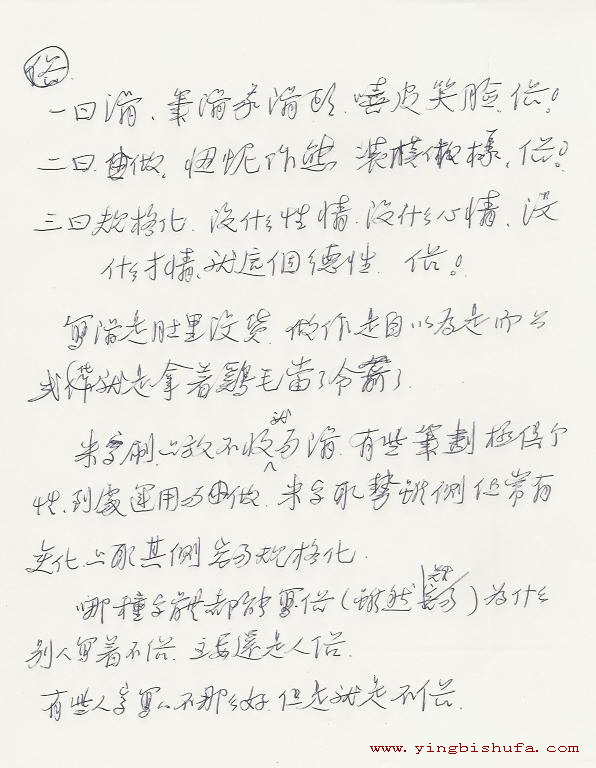 俗
一曰滑、筆滑家滑頭、嘻皮笑臉、俗！
二曰做、忸怩作態 裝模做樣、俗！
三曰規格化、沒什么性情、沒什么心情、沒
什么才情、就這個德性、俗！
寫滑是肚里沒貨、做作是自以為是而
式樣就是拿着鷄毛當了令箭了
米字刷、放不收就為滑、有些筆劃極得
性、到處運用為做、米字取勢雖側但常有
變化、取其側為規格化、
哪種字體都能寫俗（雖然 ）為什么
別人寫着不俗、主要還是人俗、
有些人字寫不那么好、但是就是不俗、
www.yingbishufa.com